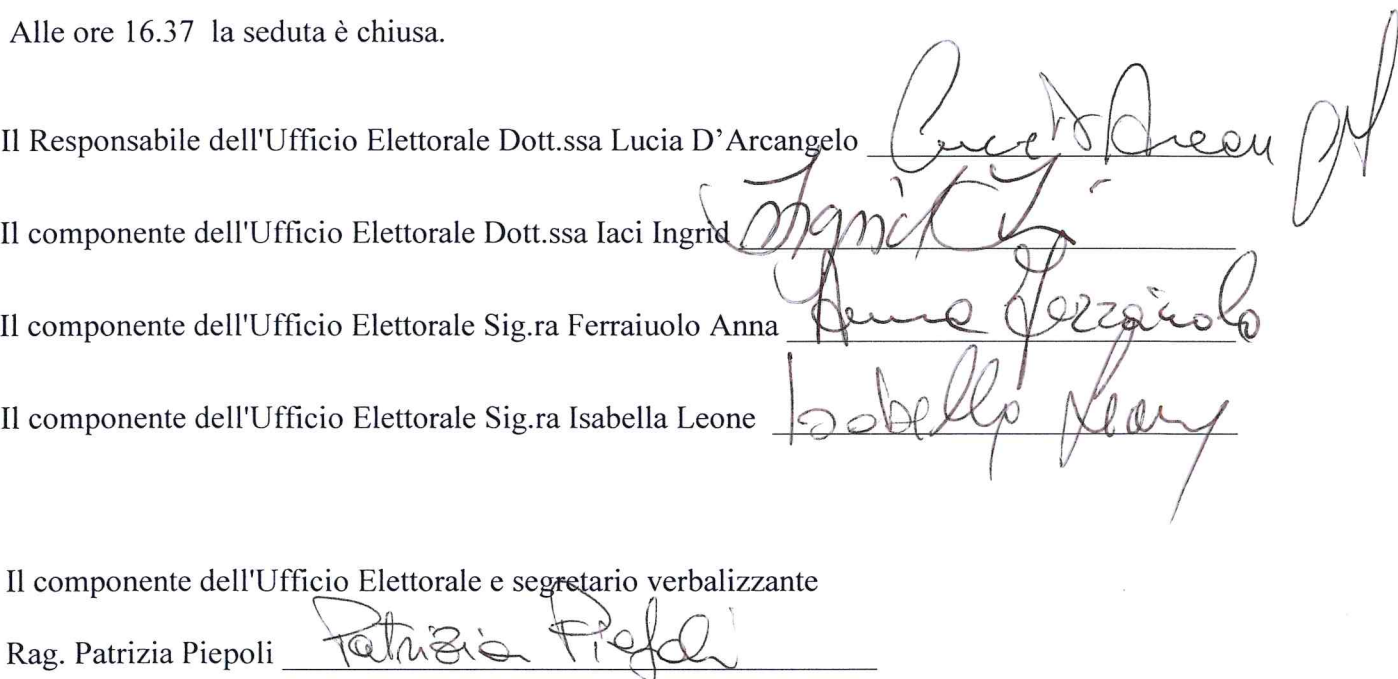 Alle ore 16.37 la seduta è chiusa.
Il Responsabile dell'Ufficio Elettorale Dott.ssa Lucia D’Arcangelo
Il componente dell'Ufficio Elettorale Dott.ssa Iaci Ingrid Ingrid
Il componente dell'Ufficio Elettorale Sig.ra Ferraiuolo Anna Anna Ferraiuolo
Il componente dell'Ufficio Elettorale Sig.ra Isabella Leone Isabella Leone
Il componente dell'Ufficio Elettorale e segretario verbalizzante
Rag. Patrizia Piepoli Patrizia Piepoli